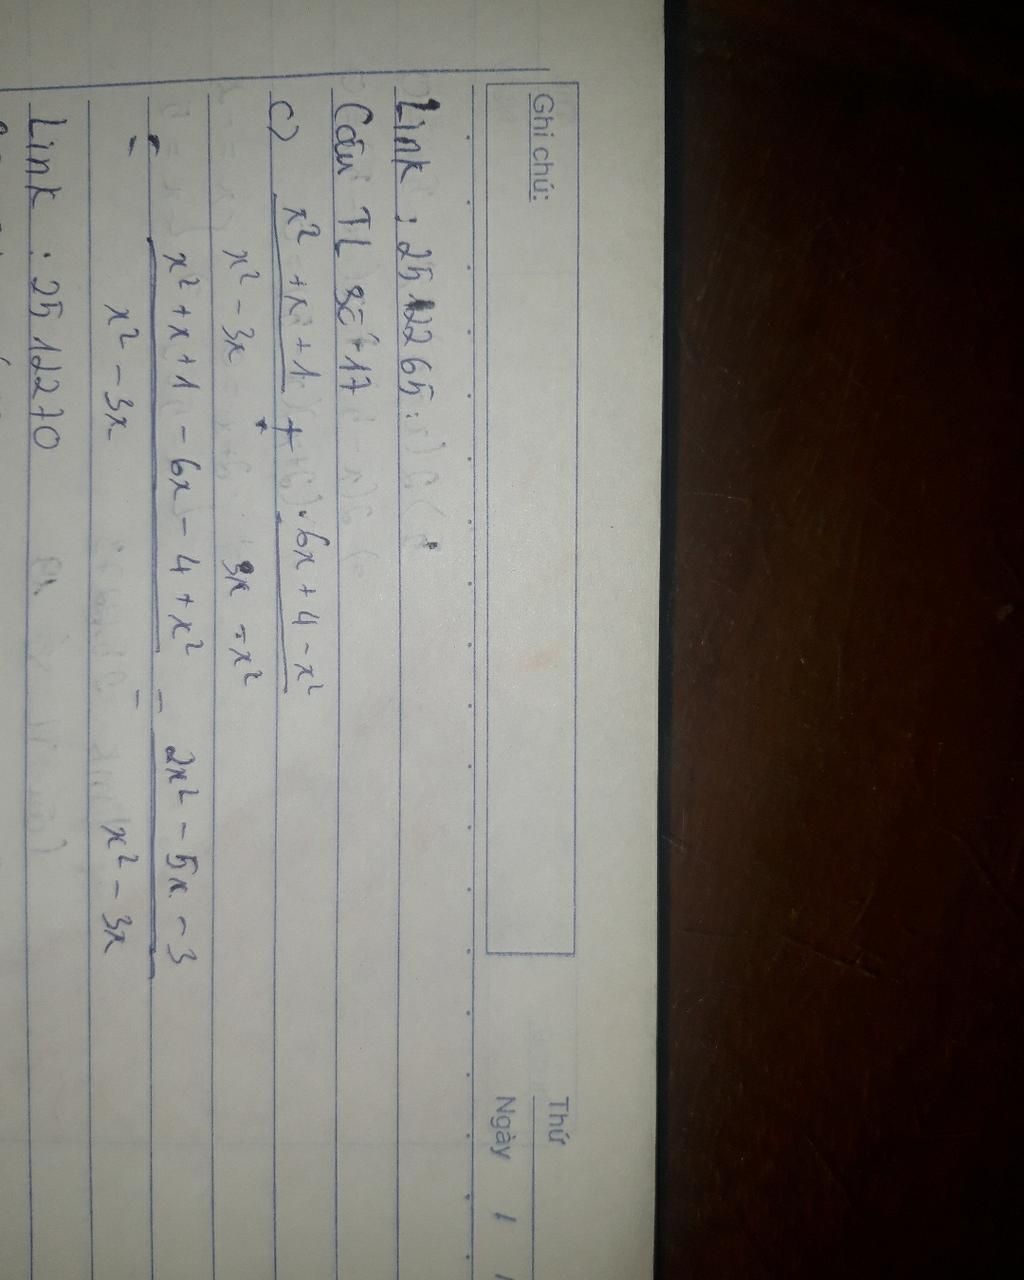 Ghi chú:
Thứ
Ngày / /
Link : 2512265 :
Câu TL số 17
c) x² + x + 1 + 6x + 4 - x²
x² - 3x 3x - x²
= x² + x + 1 - 6x - 4 + x² = 2x² - 5x - 3
x² - 3x x² - 3x
Link : 2512270